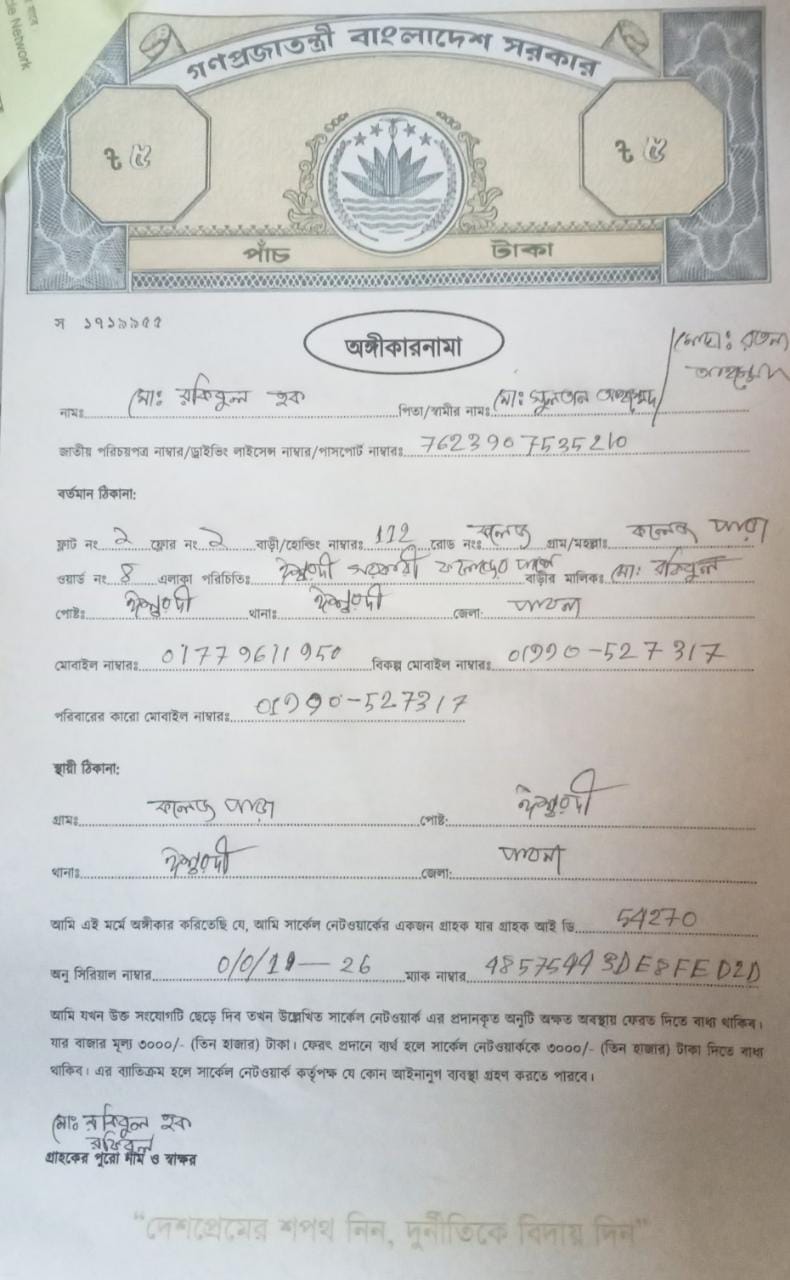 le Network
গণপ্রজাতন্ত্রী বাংলাদেশ সরকার
৳ ৫ ৳ ৫
পাঁচ টাকা
স ১৭১৯৯৫৫
অঙ্গীকারনামা
মোছা: রতনা
নামঃ মো: রকিবুল হক পিতা/স্বামীর নামঃ মো: সুলতান আহম্মেদ
জাতীয় পরিচয়পত্র নাম্বার/ড্রাইভিং লাইসেন্স নাম্বার/পাসপোর্ট নাম্বারঃ 7623907535210
বর্তমান ঠিকানা:
ফ্লাট নং ২ ফ্লোর নং ২ বাড়ী/হোল্ডিং নাম্বারঃ 112 রোড নংঃ কলেজ গ্রাম/মহল্লাঃ কলেজ পাড়া
ওয়ার্ড নং 8 এলাকা পরিচিতিঃ ঈশ্বরদী সরকারী কলেজের পার্শ্বে বাড়ীর মালিকঃ মো: রকিবুল
পোষ্টঃ ঈশ্বরদী থানাঃ ঈশ্বরদী জেলা: পাবনা
মোবাইল নাম্বারঃ 01779611950 বিকল্প মোবাইল নাম্বারঃ 01990-527317
পরিবারের কারো মোবাইল নাম্বারঃ 01990-527317
স্থায়ী ঠিকানা:
গ্রামঃ কলেজ পাড়া পোষ্ট: ঈশ্বরদী
থানাঃ ঈশ্বরদী জেলা: পাবনা
আমি এই মর্মে অঙ্গীকার করিতেছি যে, আমি সার্কেল নেটওয়ার্কের একজন গ্রাহক যার গ্রাহক আই ডি 54270
অনু সিরিয়াল নাম্বার 0/0/11-26 ম্যাক নাম্বার 48575443DE8FED2D
আমি যখন উক্ত সংযোগটি ছেড়ে দিব তখন উল্লেখিত সার্কেল নেটওয়ার্ক এর প্রদানকৃত অনুটি অক্ষত অবস্থায় ফেরত দিতে বাধ্য থাকিব।
যার বাজার মূল্য ৩০০০/- (তিন হাজার) টাকা। ফেরৎ প্রদানে ব্যর্থ হলে সার্কেল নেটওয়ার্ককে ৩০০০/- (তিন হাজার) টাকা দিতে বাধ্য
থাকিব। এর ব্যতিক্রম হলে সার্কেল নেটওয়ার্ক কর্তৃপক্ষ যে কোন আইনানুগ ব্যবস্থা গ্রহণ করতে পারবে।
মো: রকিবুল হক
রকিবুল
গ্রাহকের পুরো নাম ও স্বাক্ষর
"দেশপ্রেমের শপথ নিন, দুর্নীতিকে বিদায় দিন"